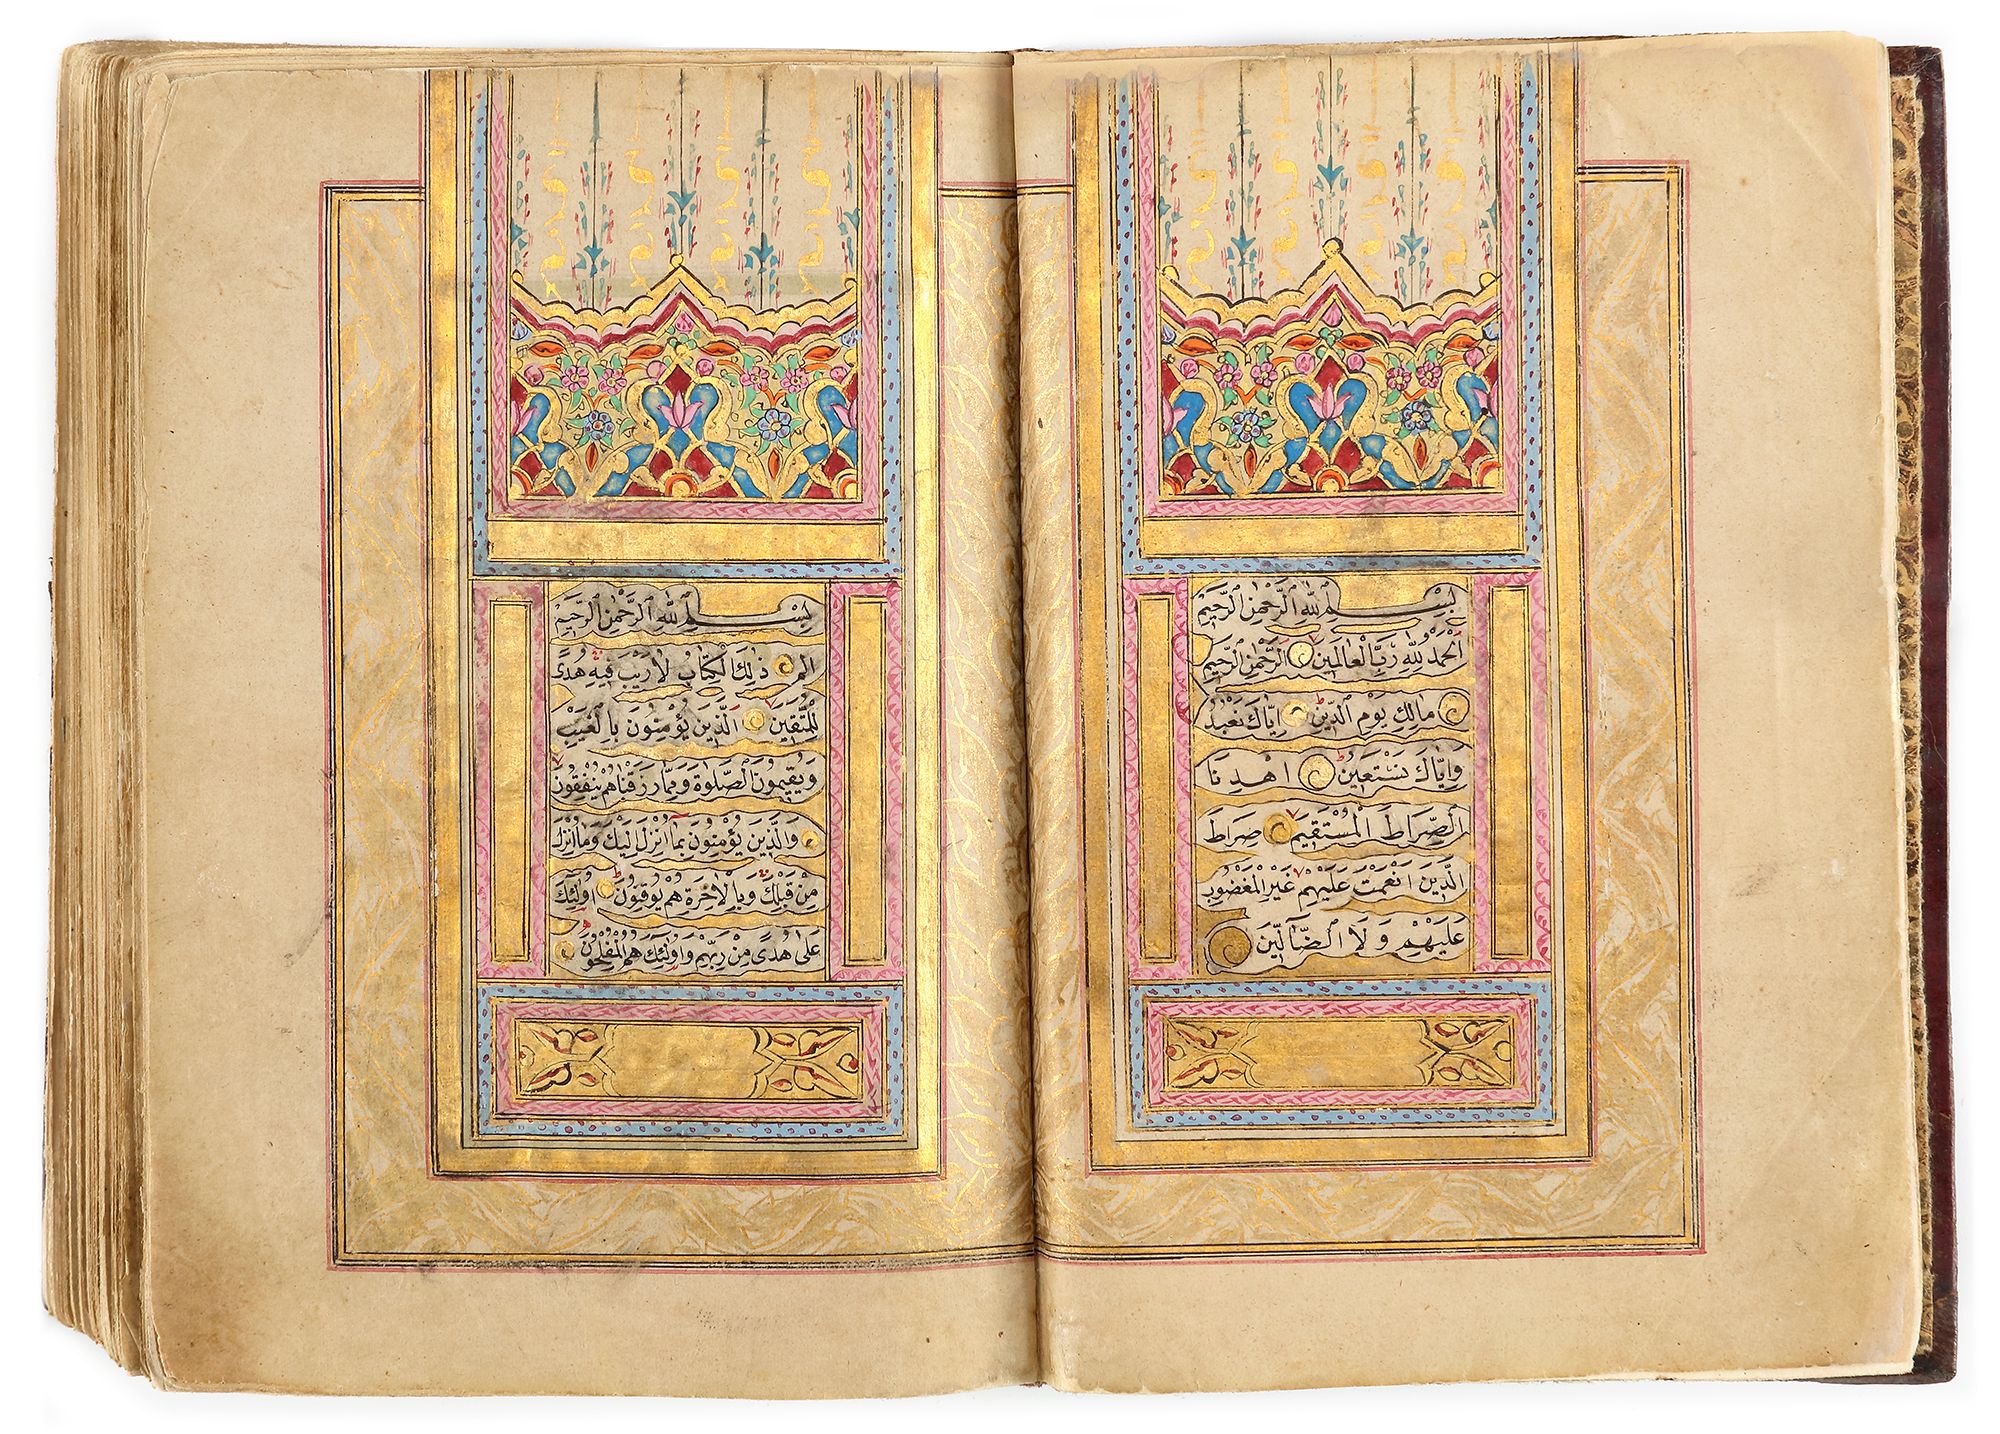 بِسْمِ اللهِ الرَّحْمٰنِ الرَّحِيمِ
اَلْحَمْدُ لِلّٰهِ رَبِّ الْعَالَمِينَ الرَّحْمٰنِ الرَّحِيمِ
مَالِكِ يَوْمِ الدِّينِ اِيَّاكَ نَعْبُدُ
وَاِيَّاكَ نَسْتَعِينُ اِهْدِنَا
الصِّرَاطَ الْمُسْتَقِيمَ صِرَاطَ
الَّذِينَ اَنْعَمْتَ عَلَيْهِمْ غَيْرِ الْمَغْضُوبِ
عَلَيْهِمْ وَلَا الضَّالِّينَ
بِسْمِ اللهِ الرَّحْمٰنِ الرَّحِيمِ
الم ذٰلِكَ الْكِتَابُ لَا رَيْبَ فِيهِ هُدًى
لِلْمُتَّقِينَ الَّذِينَ يُؤْمِنُونَ بِالْغَيْبِ
وَيُقِيمُونَ الصَّلٰوةَ وَمِمَّا رَزَقْنَاهُمْ يُنْفِقُونَ
وَالَّذِينَ يُؤْمِنُونَ بِمَا اُنْزِلَ اِلَيْكَ وَمَا اُنْزِلَ
مِنْ قَبْلِكَ وَبِالْاٰخِرَةِ هُمْ يُوقِنُونَ اُولٰٓئِكَ
عَلٰى هُدًى مِنْ رَبِّهِمْ وَاُولٰٓئِكَ هُمُ الْمُفْلِحُونَ